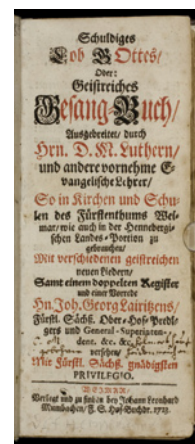 Schuldiges
Lob GOttes/
Oder:
Geistreiches
Gesang-Buch/
Ausgebreitet/ durch
Hrn. D. M. Luthern/
und andere vornehme E-
vangelische Lehrer/
So in Kirchen und Schu-
len des Fürstenthums Wei-
mar/ wie auch in der Hennebergi-
schen Landes-Portion zu
gebrauchen/
Mit verschiedenen geistreichen
neuen Liedern/
Samt einem doppelten Register
und einer Vorrede
Hn. Joh. Georg Lairitzens/
Fürstl. Sächß. Ober-Hof-Predi-
gers und General-Superinten-
dent. &c. &c.
versehen/
Mit Fürstl. Sächß. gnädigsten
PRIVILEGIO.
WEIMAR/
Verlegt und zu finden bey Johann Leonhard
Mumbachen/ F. S. Hof-Buchdr. 1713.